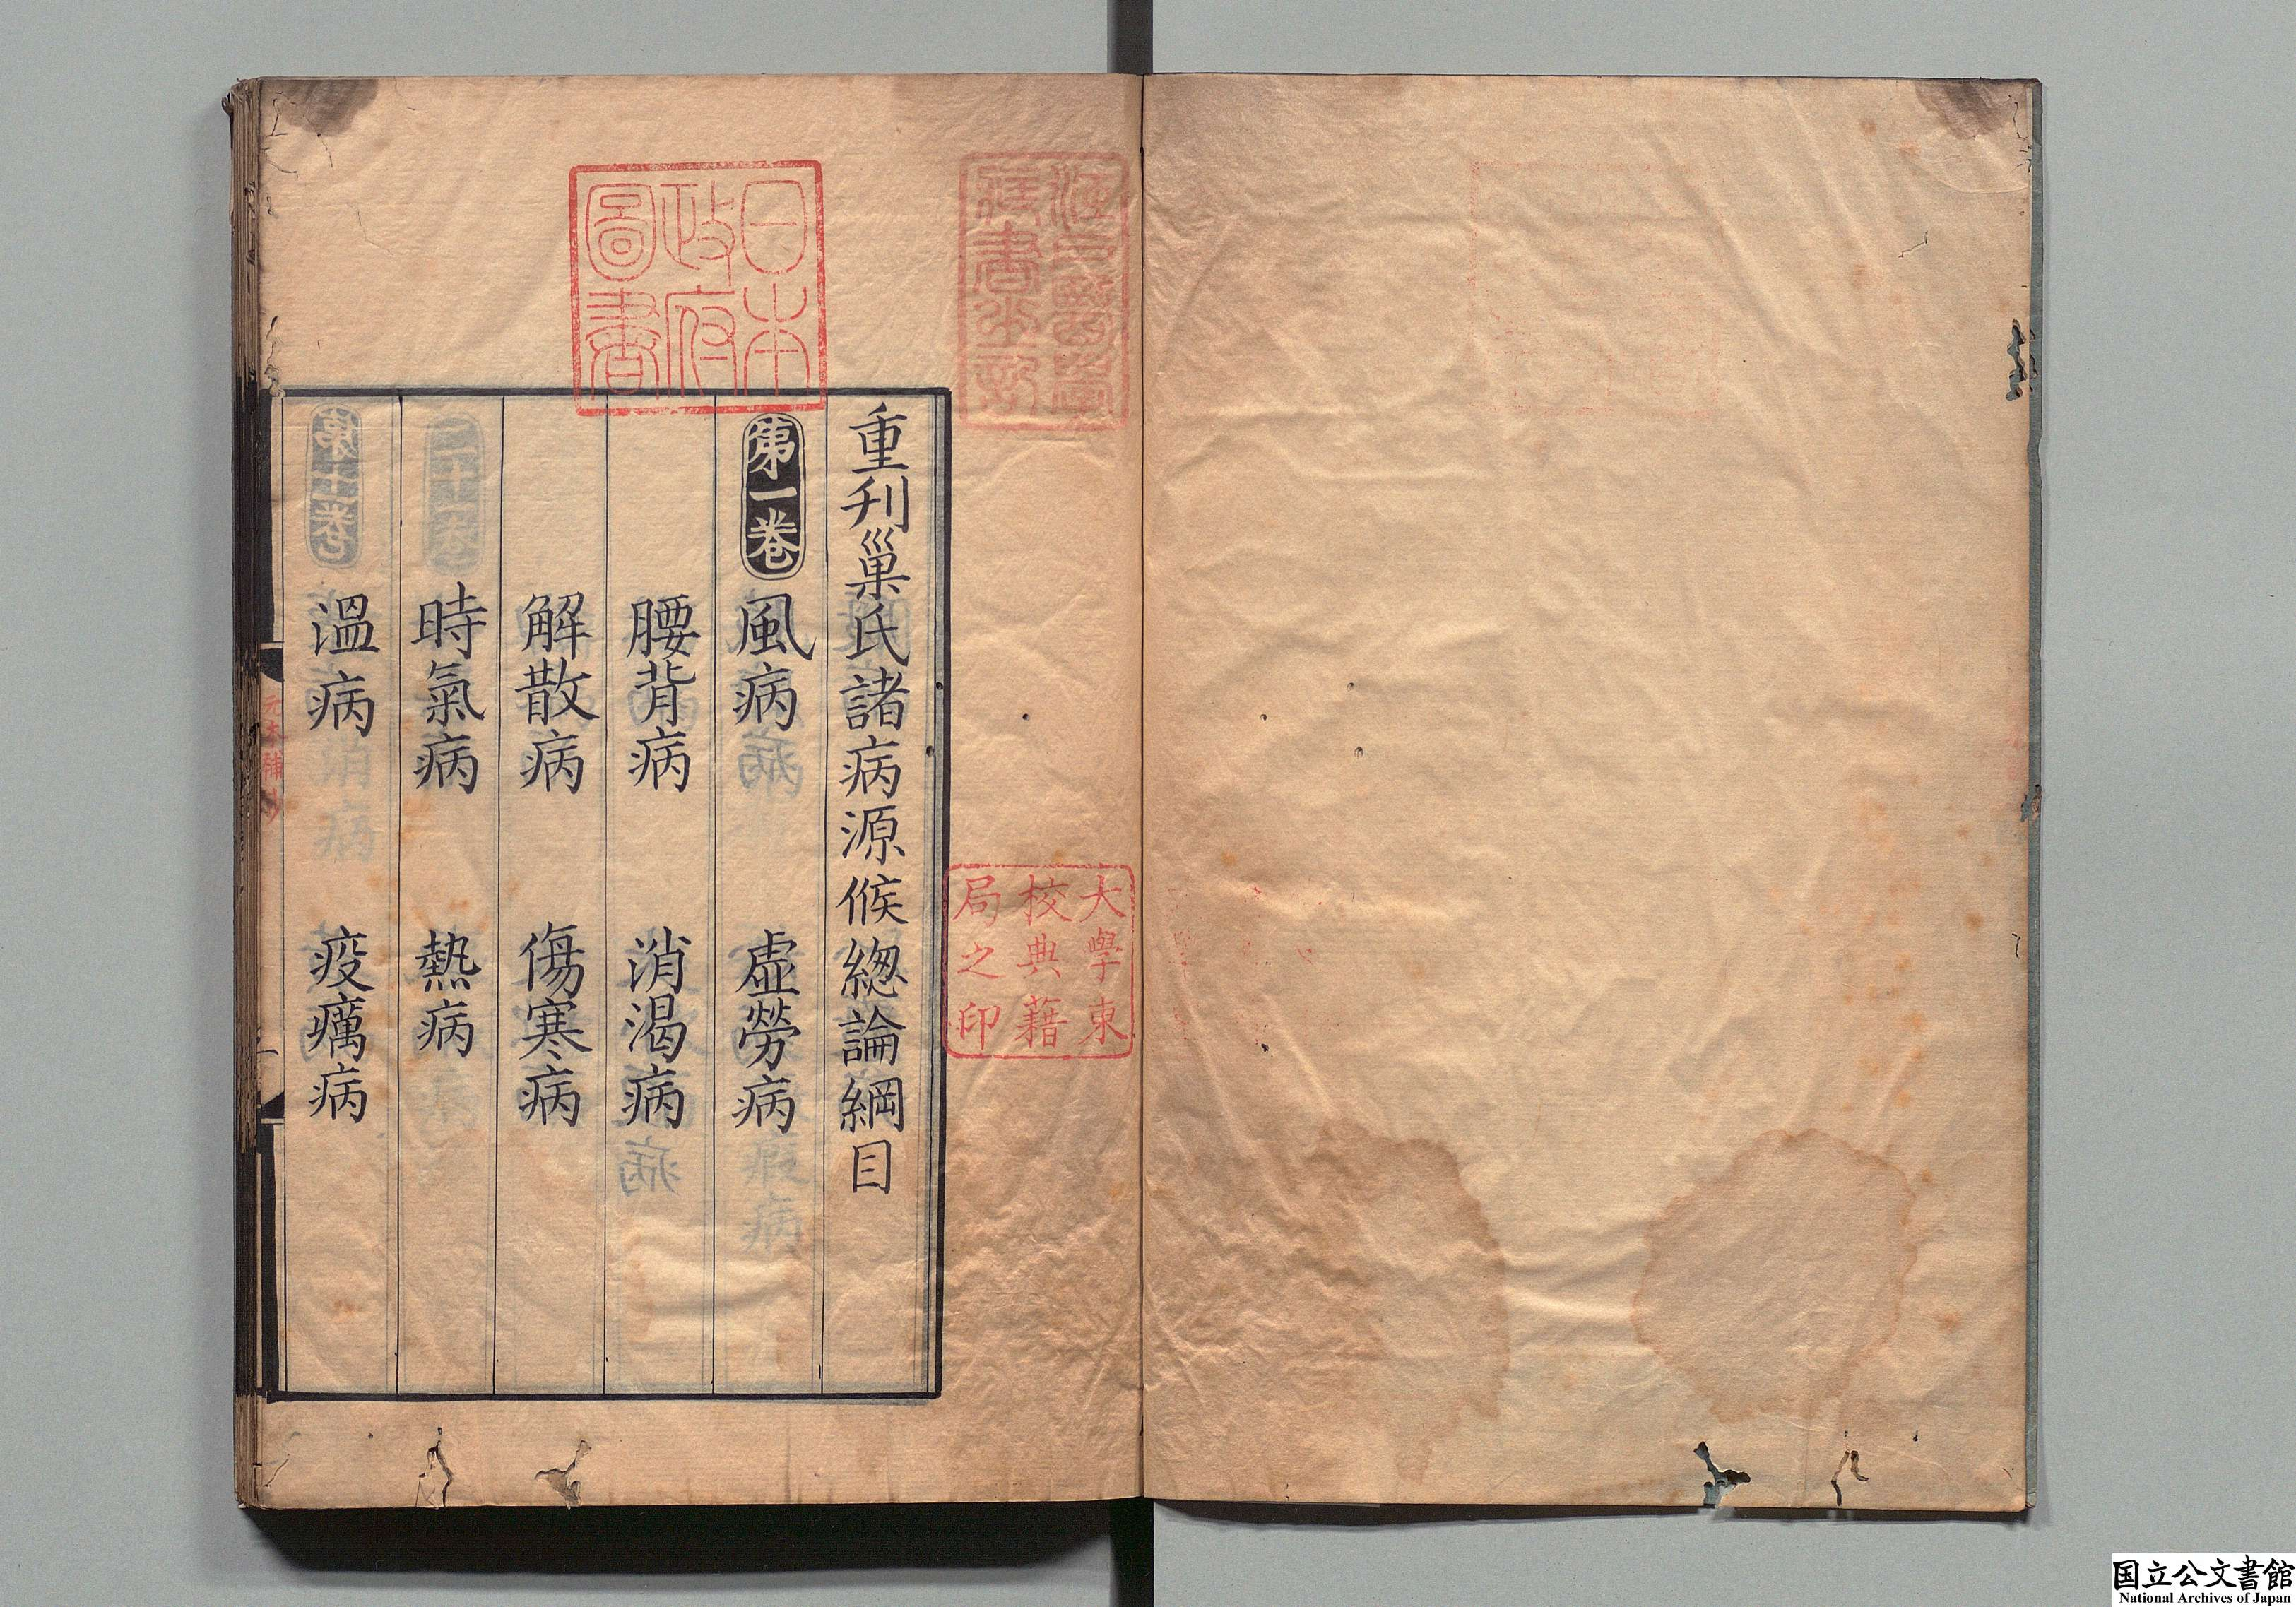 重刋巢氏諸病源候總論綱目
第一卷 風病 虛勞病
腰背病 消渴病
解散病 傷寒病
時氣病 熱病
溫病 疫癘病
日本
政府
圖書
江戸醫學
藏書之印
大學東
校典藉
局之印
元本補抄
一
国立公文書館
National Archives of Japan